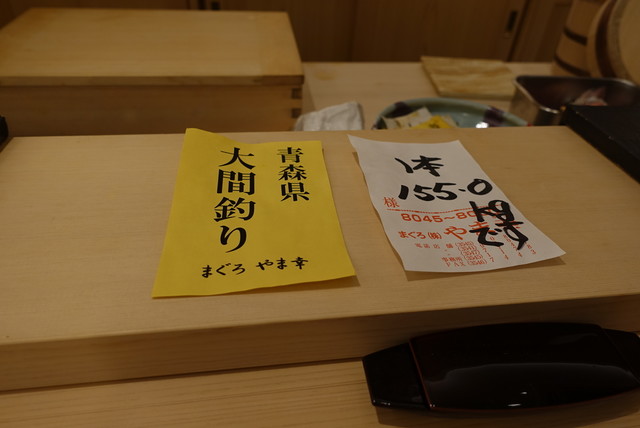 青森県
大間釣り
まぐろ やま幸
1本
155.0
kgです
様
8045~80
まぐろ(株) やま幸